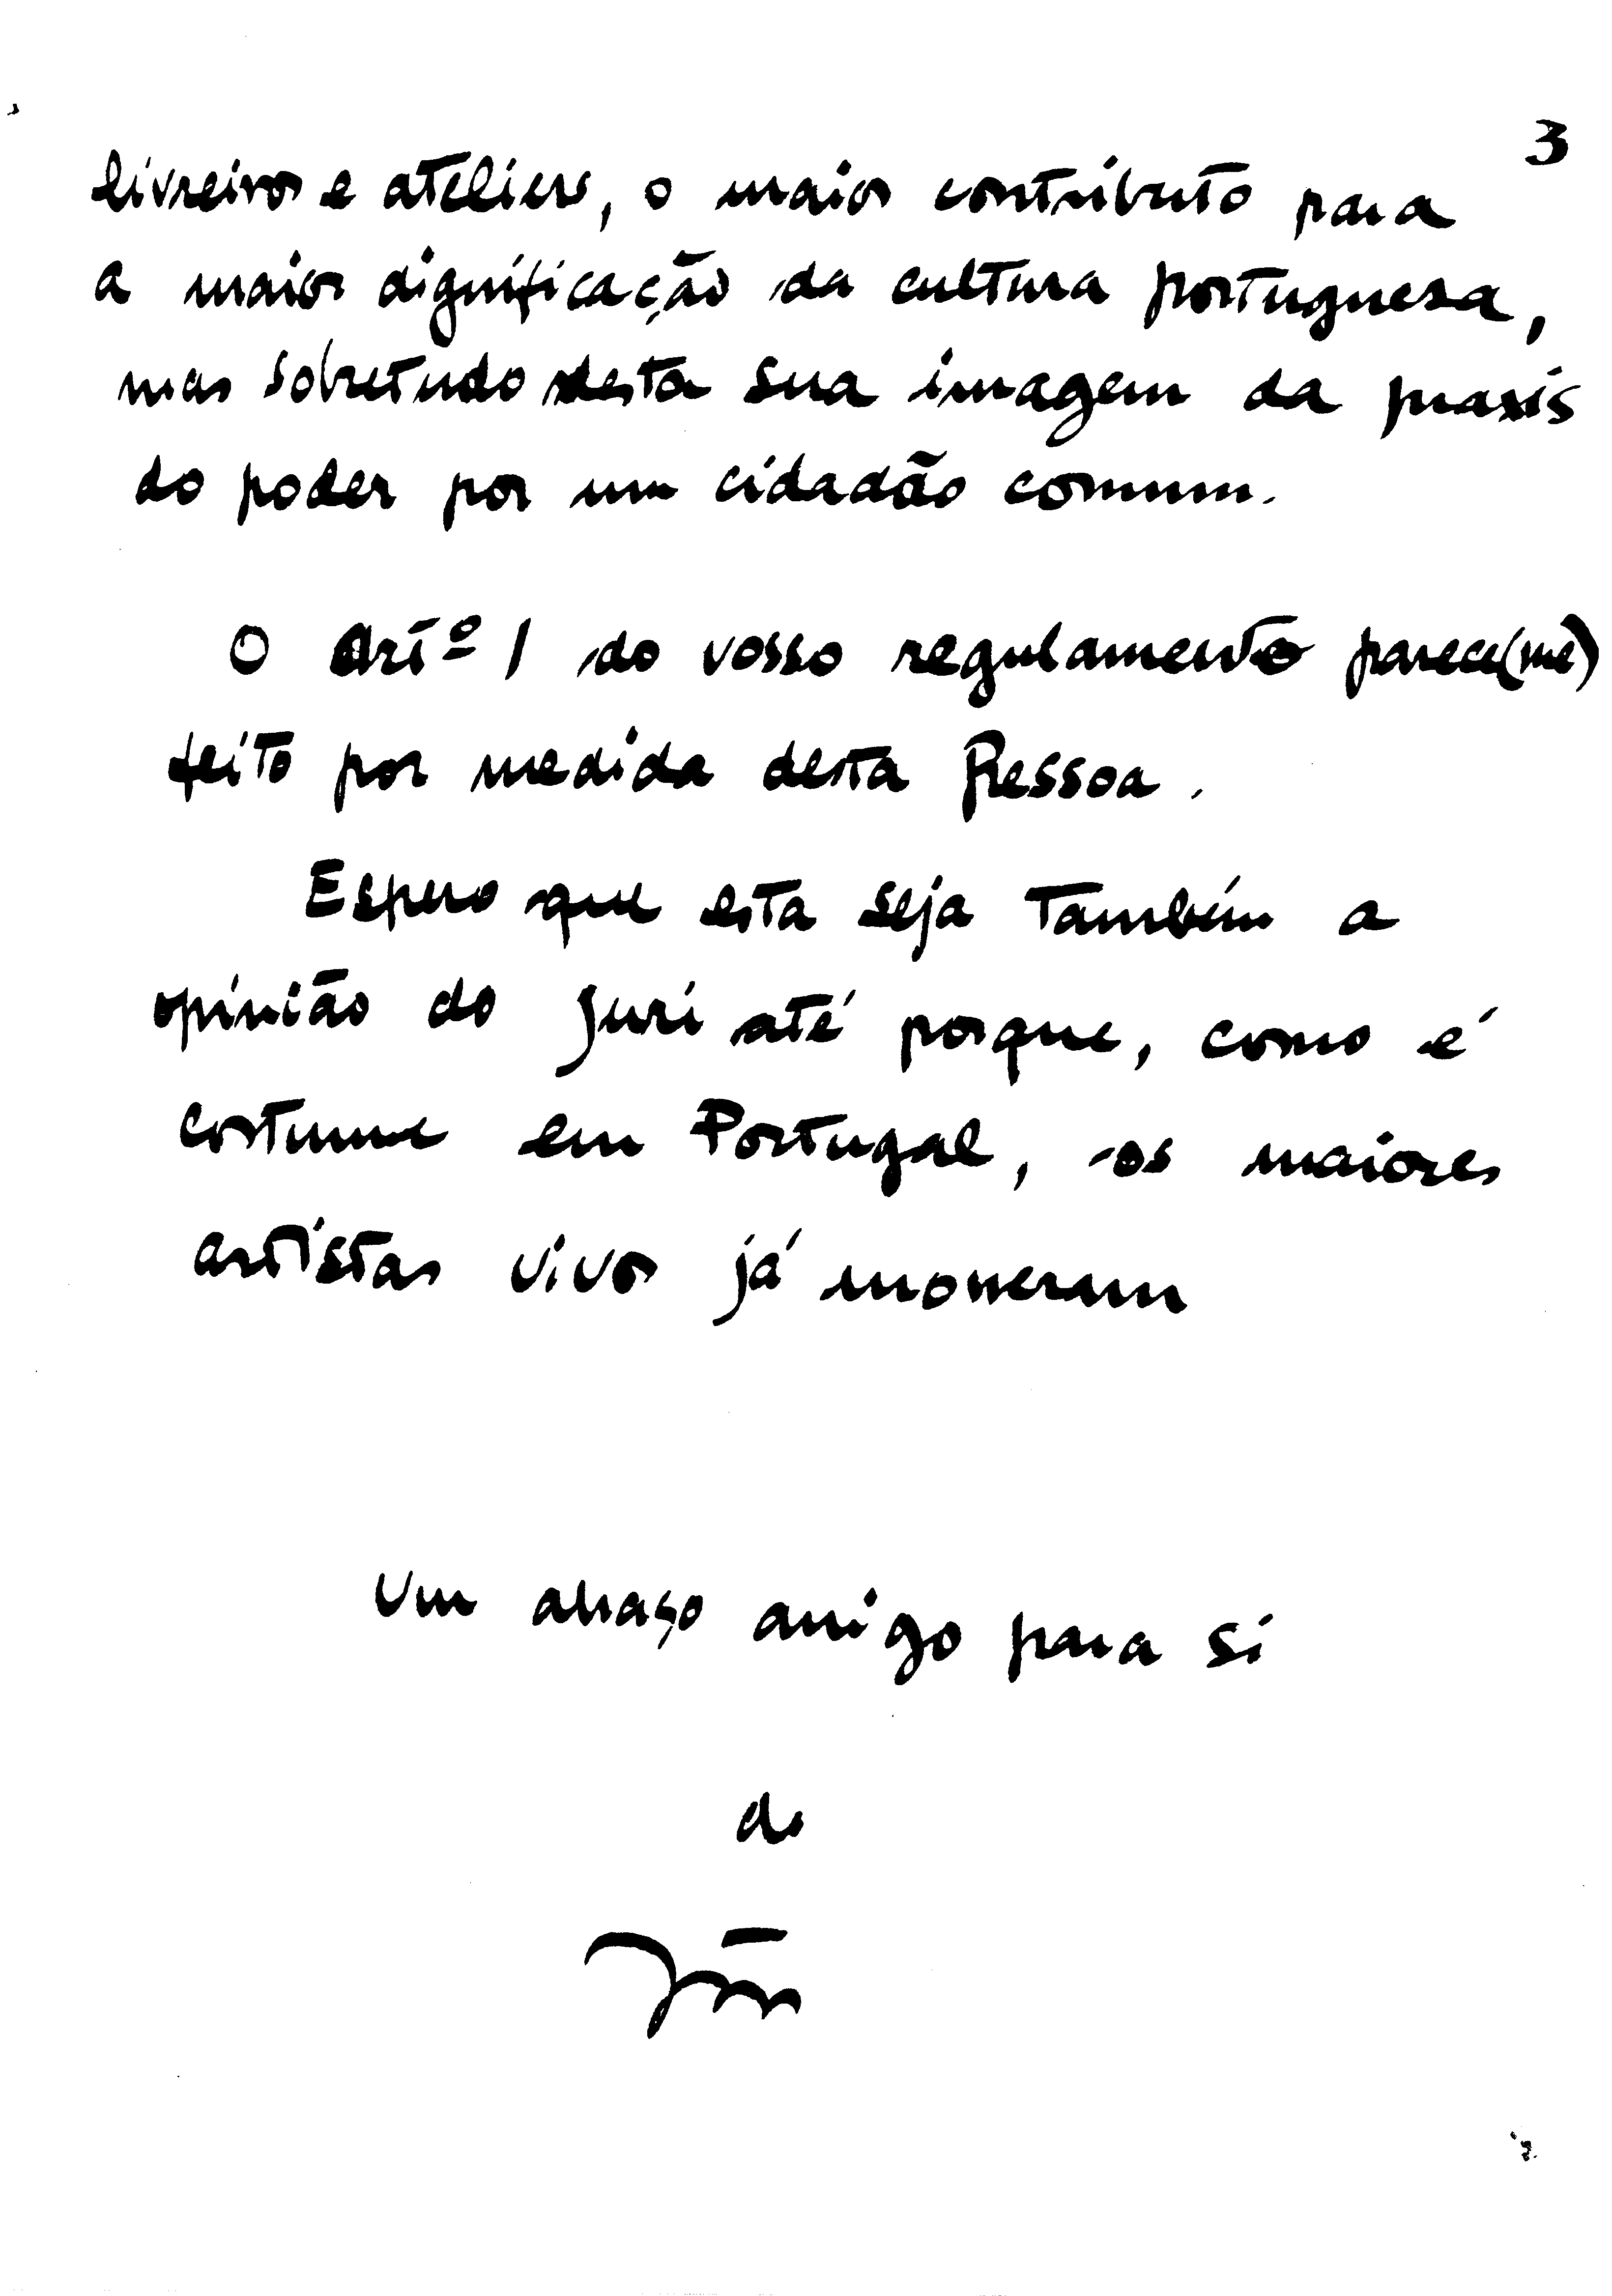 3
livreiros e ateliers, o maior contributo para
a maior dignificação da cultura portuguesa,
mas sobretudo desta sua imagem da praxis
do poder por um cidadão comum.
O Artº 1 do vosso regulamento parece(me)
feito por medida desta Pessoa.
Espero que esta seja também a
opinião do Juri até porque, como é
costume em Portugal, os maiores
artistas vivos já morreram
Um abraço amigo para si
do
João